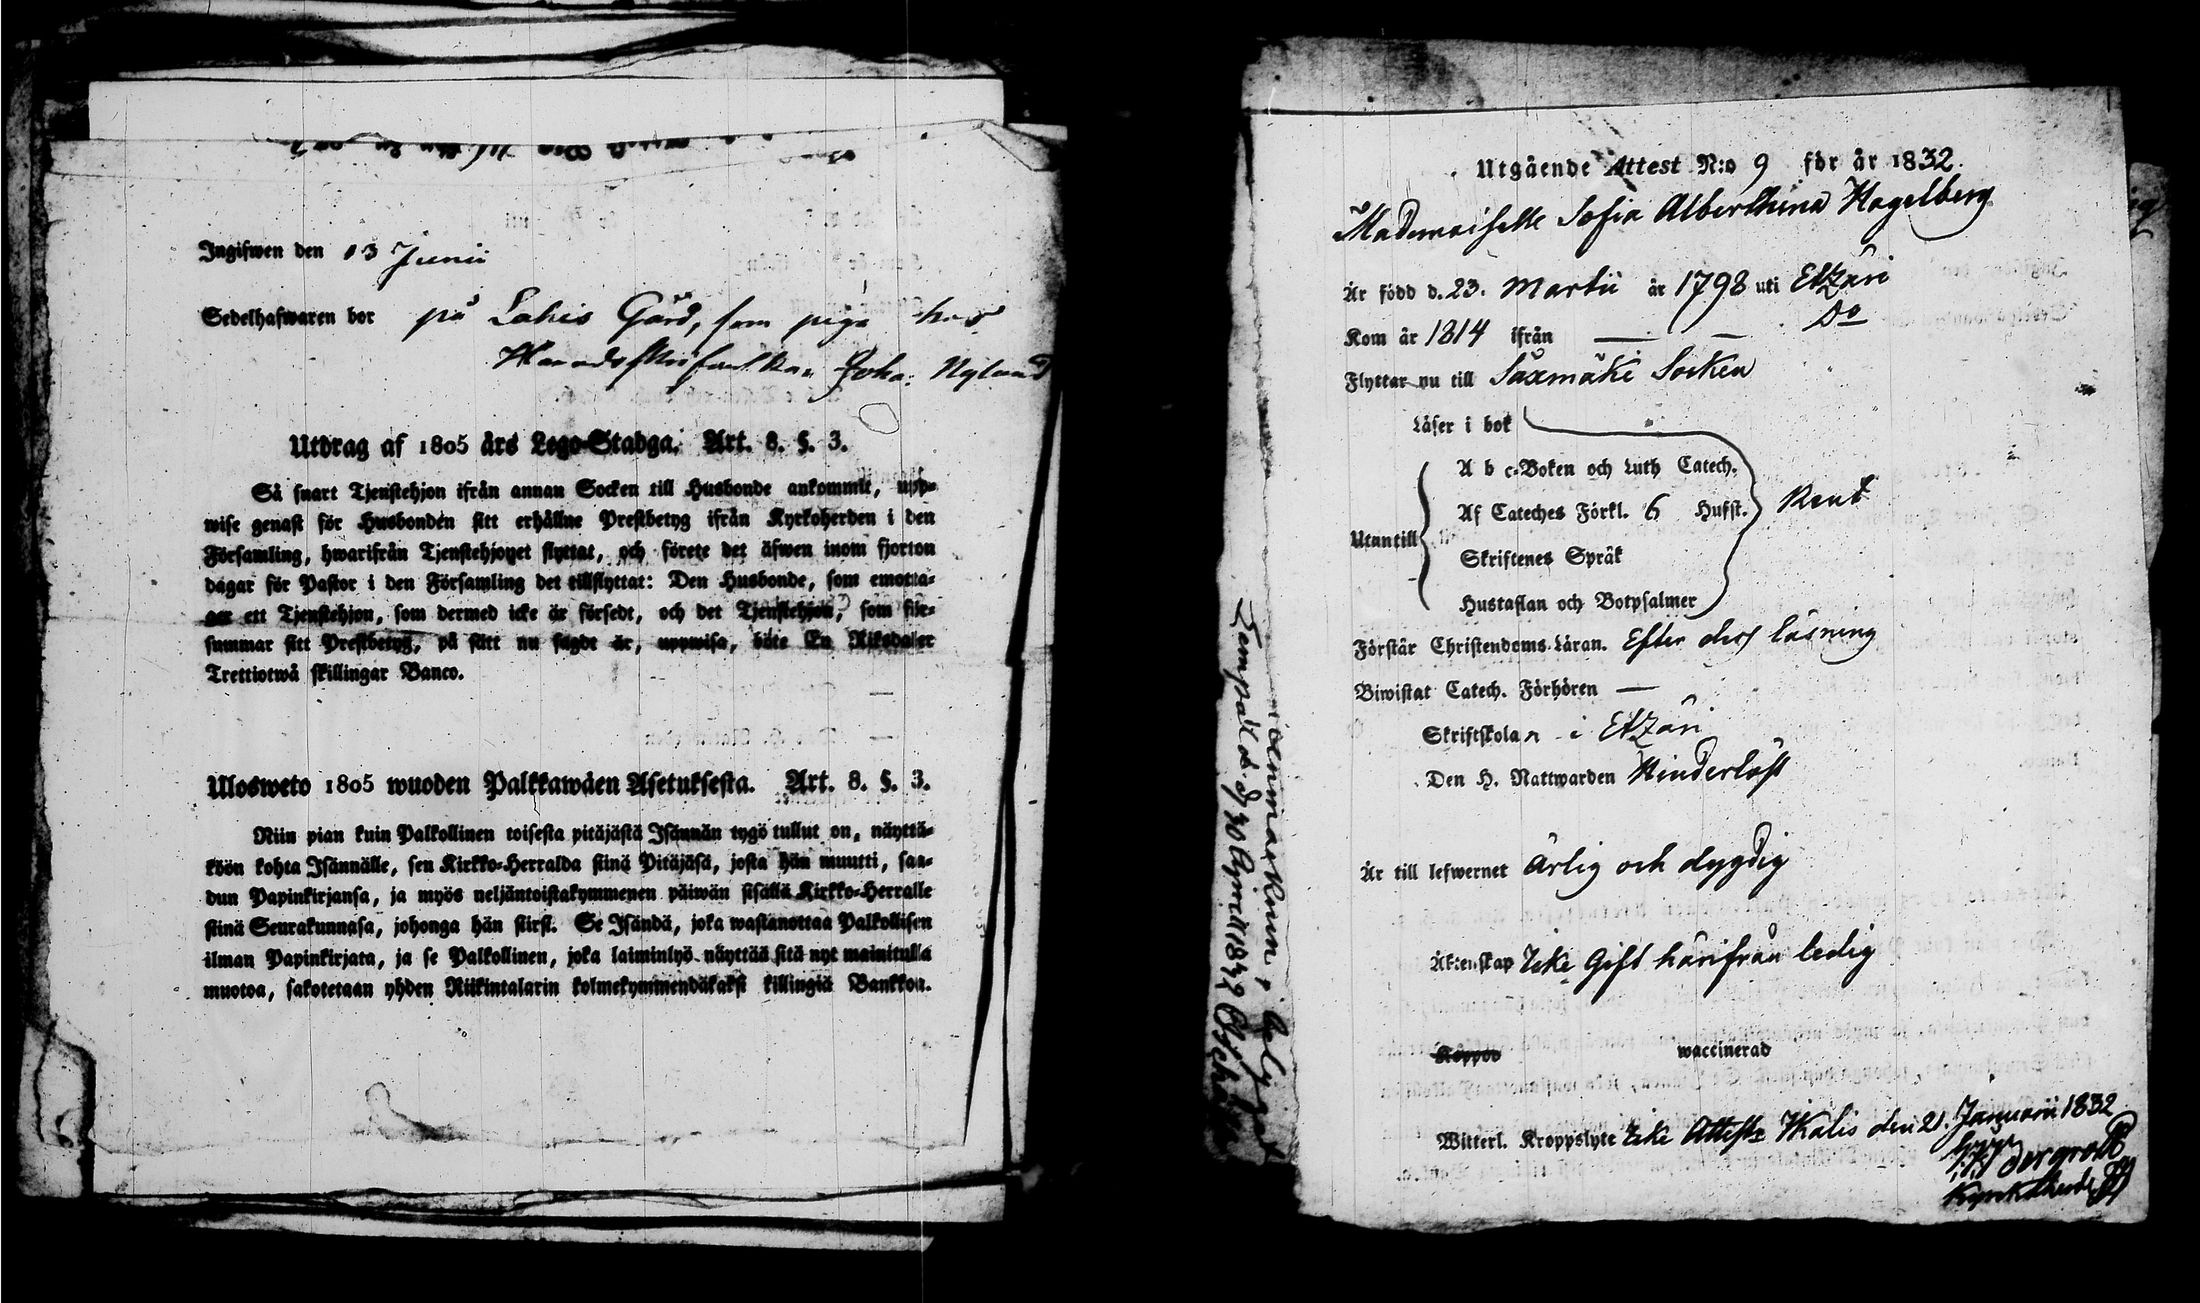 Ingifwen den 13 Junii
Sedelhafwaren bor på Lahis Gård, som piga hos
Joha: Nylund
Utdrag af 1805 års Lego-Stadga. Art. 8. §. 3.
Så snart Tjenstehjon ifrån annan Socken till Husbonde ankommit, upp-
wise genast för Husbonden sitt erhållne Prestbetyg ifrån Kyrkoherden i den
Församling, hwarifrån Tjenstehjonet flyttat, och förete det äfwen inom fjorton
dagar för Pastor i den Församling det tillflyttat: Den Husbonde, som emotta-
gar ett Tjenstehjon, som dermed icke är försedt, och det Tjenstehjon, som för-
summar sitt Prestbetyg, på sätt nu sagdt är, uppwisa, böte En Riksdaler
Trettiotwå skillingar Banco.
Ulosweto 1805 wuoden Palkkawäen Asetuksesta. Art. 8. §. 3.
Niin pian kuin Palkollinen toisesta pitäjästä Isännän tygö tullut on, näyttä-
köön kohta Isännälle, sen Kirkko-Herralda siinä Pitäjäsä, josta hän muutti, saa-
dun Papinkirjansa, ja myös neljäntoistakymmenen päiwän sisällä Kirkko-Herralle
siinä Seurakunnasa, johonga hän siirsi. Se Isändä, joka wastanottaa Palkollisen
ilman Papinkirjata, ja se Palkollinen, joka laiminlyö näyttää sitä nyt mainitulla
muotoa, sakotetaan yhden Riikintalarin kolmekymmendäkaksi killingiä Bankkoa.
Utgående Attest N:o 9 för år 1832.
Mademoiselle Sofia Alberthina Hagelberg
Är född d. 23. Martii år 1798 uti Etzäri
Kom år 1814 ifrån — — Do
Flyttar nu till Säxmäki Socken
Läser i bok
A b c-Boken och Luth Catech.
Af Cateches Förkl. 6 Hufst. Rent
Utantill
Skriftenes Språk
Hustaflan och Botpsalmer
Förstår Christendoms Läran. Efter dess läsning
Biwistat Catech. Förhören —
Skriftskolan i Etzäri
Den H. Nattwarden Hinderlöst
Är till lefwernet Ärlig och dygdig
Äktenskap Icke Gift härifrån ledig
Koppod waccinerad
Witterl. Kroppslyte Icke Attest. Ikalis den 21 Januarii 1832
Kyrkoherde